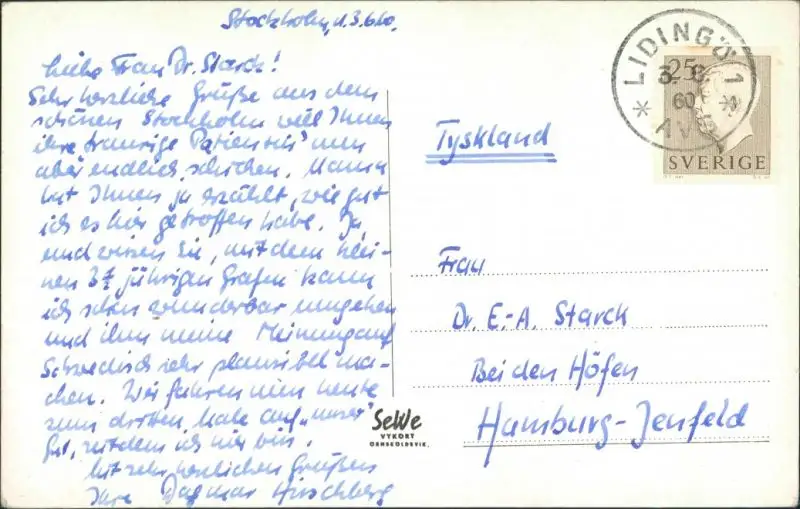 Stockholm, d. 3.6.60.
Liebe Frau Dr. Starck!
Sehr herzliche Grüße aus dem
schönen Stockholm will Ihnen
ihre „traurige Patientin" nun
aber endlich schicken. Mama
hat Ihnen ja erzählt, wie gut
ich es hier getroffen habe. Ja,
und wissen Sie, mit dem klei-
nen 3½ jährigen Grafen kann
ich schon wunderbar umgehen
und ihm meine Meinung auf
Schwedisch sehr plausibel ma-
chen. Wir fahren nun heute
zum dritten Male auf „unser"
Gut, seitdem ich hier bin.
Mit sehr herzlichen Grüßen
Ihre Dagmar Hirschberg
SeWe
VYKORT
ÖRNSKÖLDSVIK.
LIDINGÖ 1
3. 6.
60
25
SVERIGE
Tyskland
Frau
Dr. E.-A. Starck
Bei den Höfen
Hamburg-Jenfeld